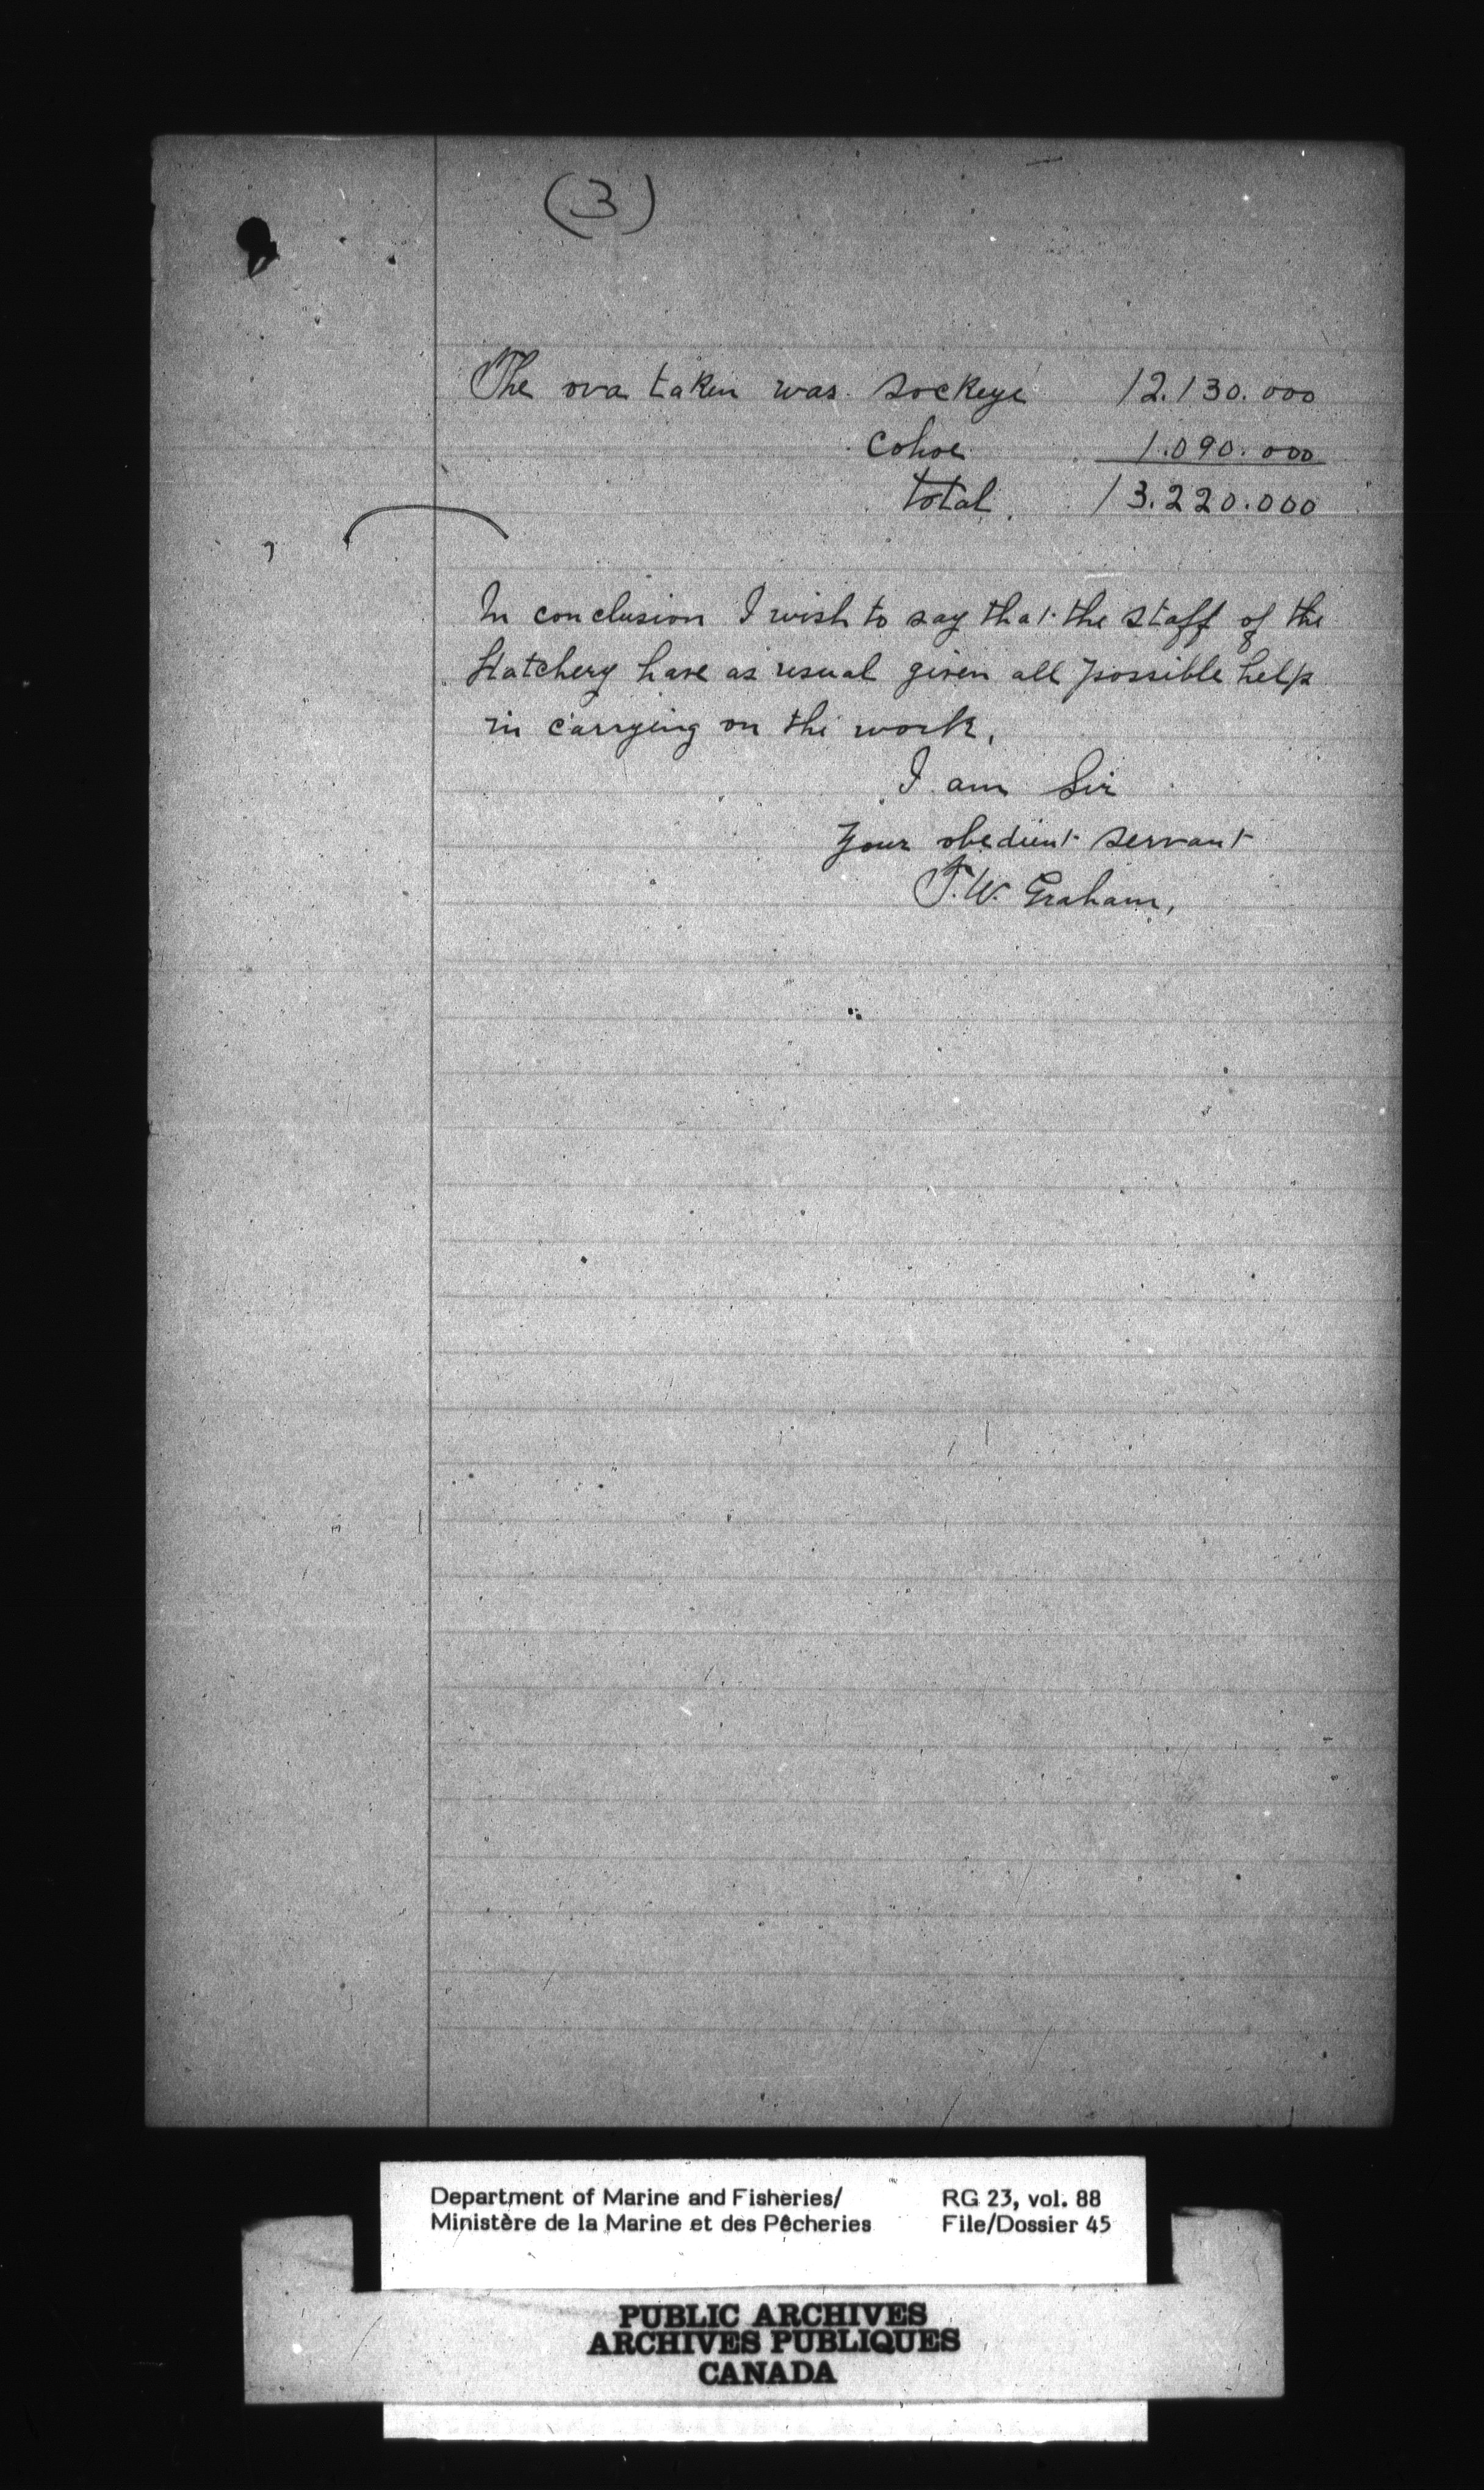 (3)
The ova taken was sockeye 12.130.000
Cohoe 1.090.000
total. 13.220.000
In conclusion I wish to say that the staff of the
Hatchery have as usual given all possible help
in carrying on the work,
I am Sir
Your obedient servant
T.W. Graham,
Department of Marine and Fisheries/ RG 23, vol. 88
Ministère de la Marine et des Pêcheries File/Dossier 45
PUBLIC ARCHIVES
ARCHIVES PUBLIQUES
CANADA